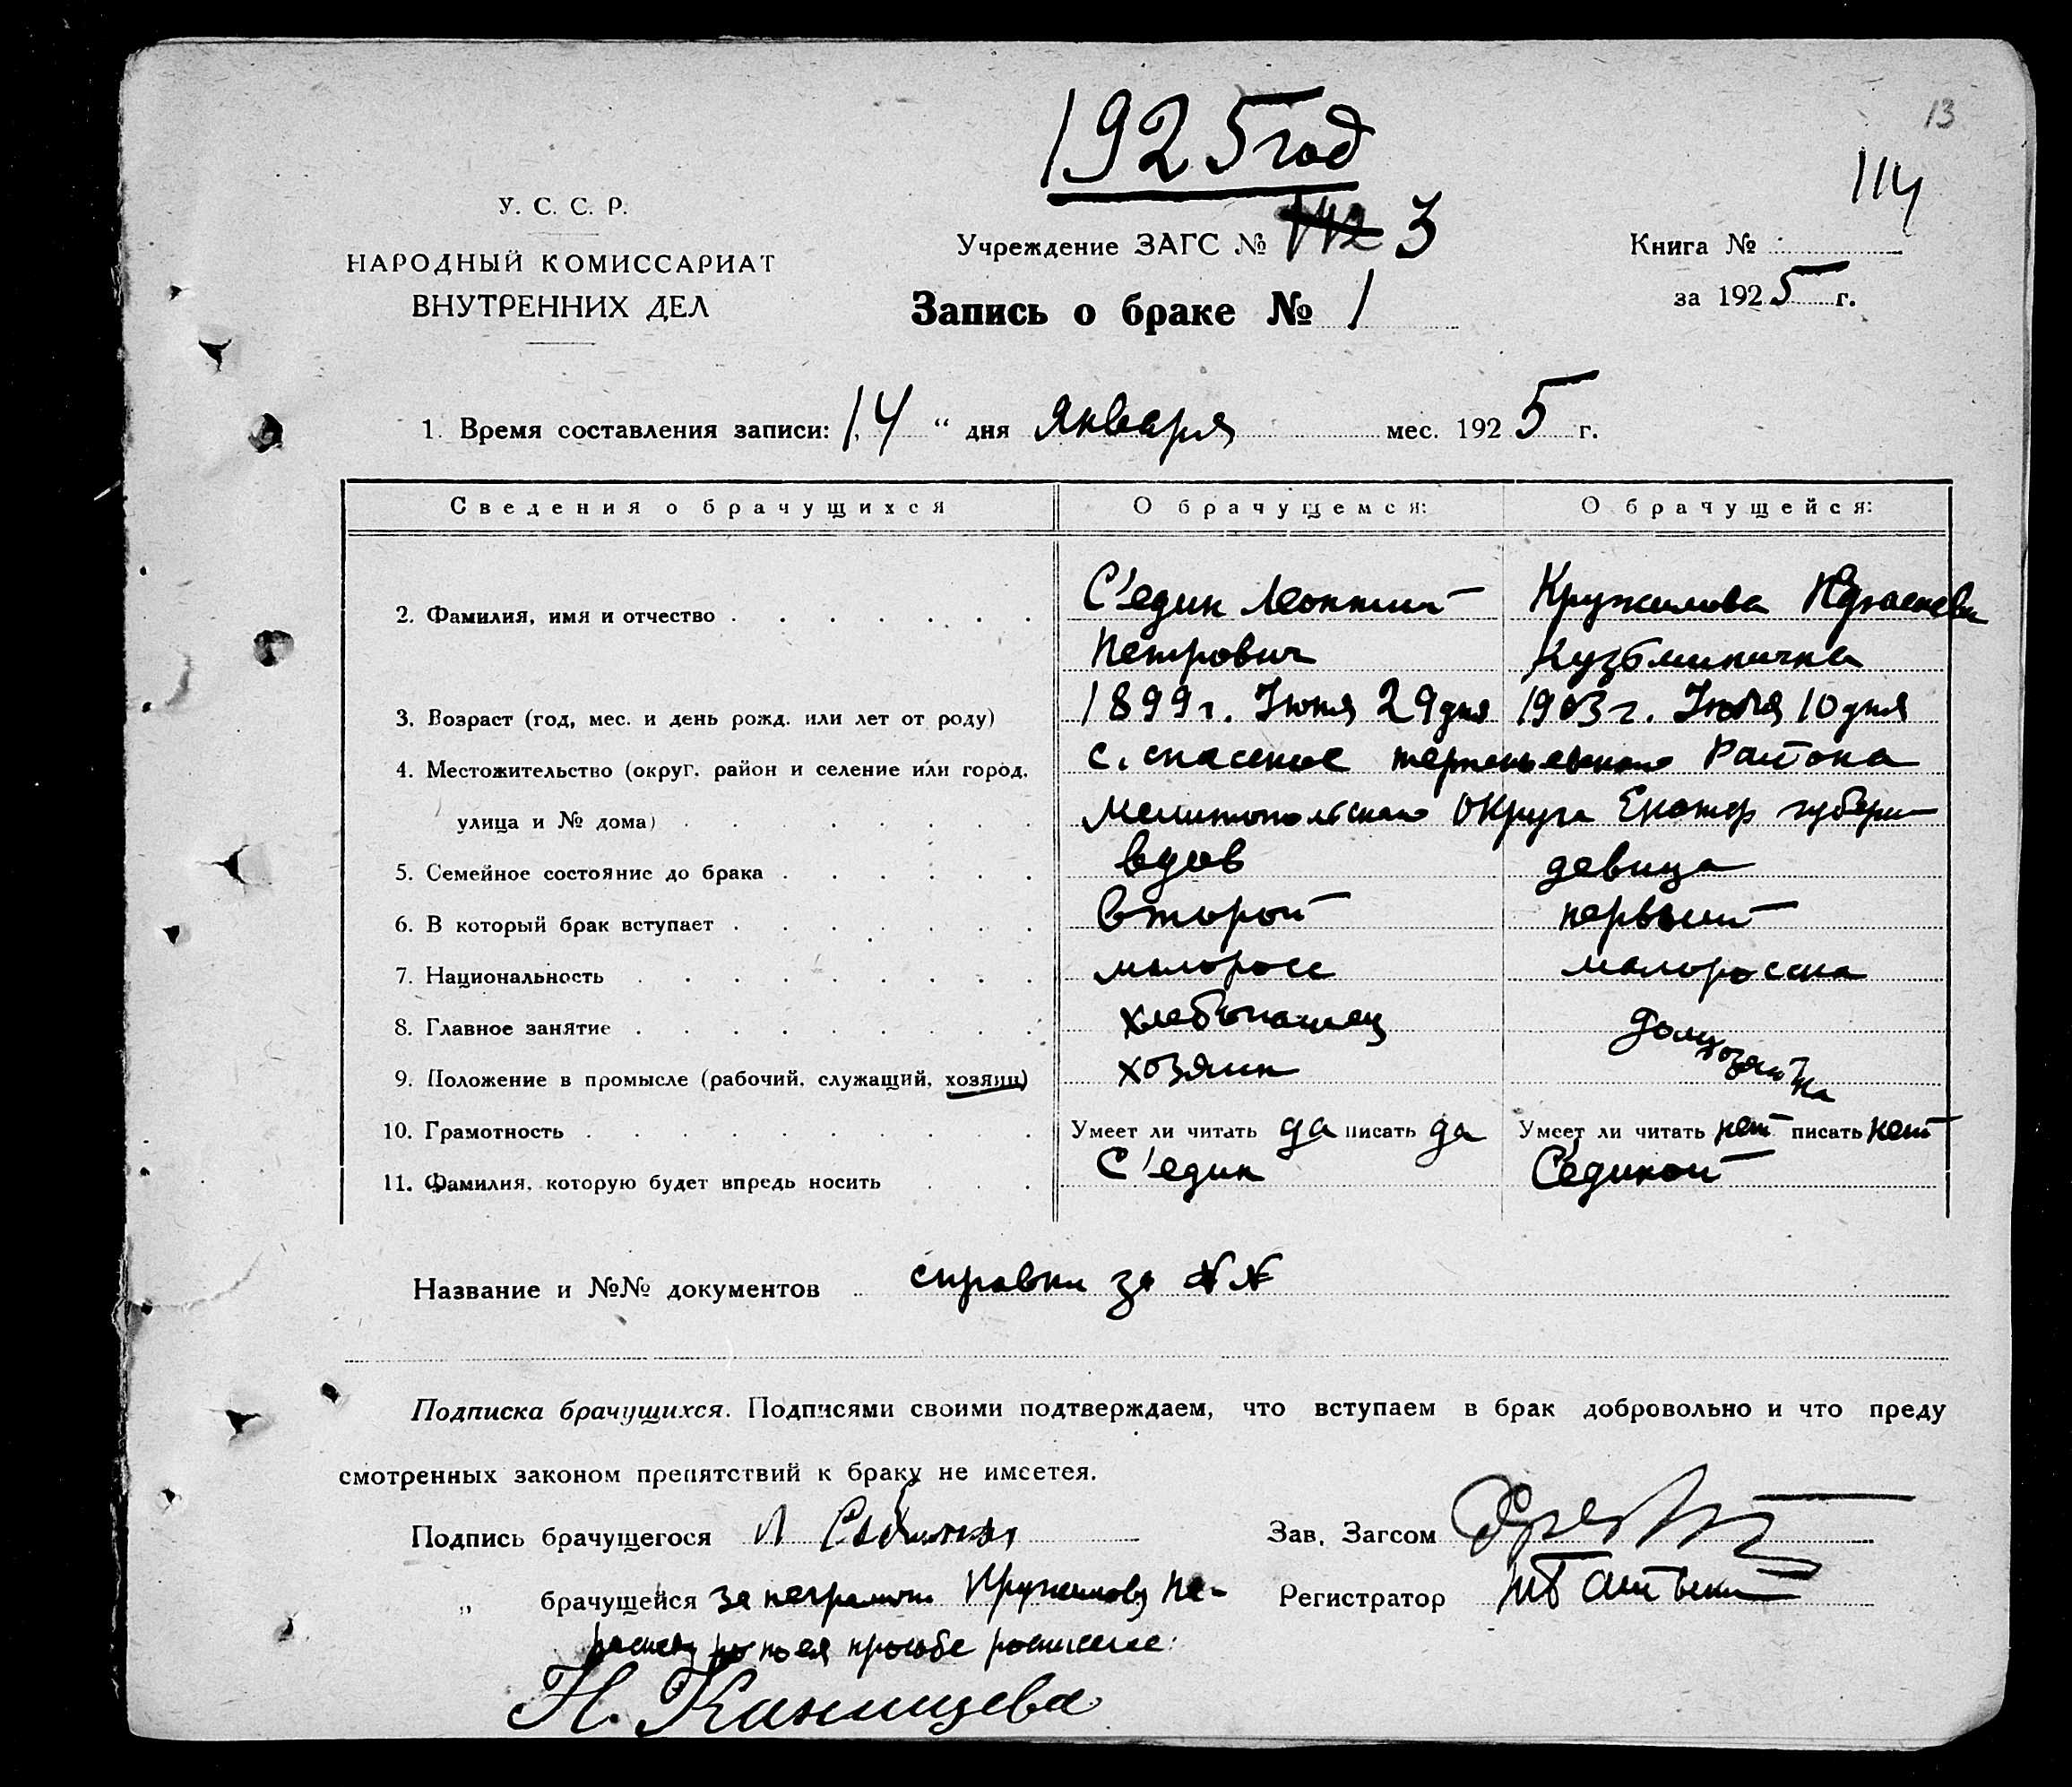 13
1925 год
114
У. С. С. Р.
НАРОДНЫЙ КОМИССАРИАТ
ВНУТРЕННИХ ДЕЛ
Учреждение ЗАГС № 3
Книга №
за 1925 г.
Запись о браке № 1
1. Время составления записи: 14 " дня Января мес. 1925 г.
Сведения о брачущихся О брачущемся: О брачущейся:
2. Фамилия, имя и отчество С'един Леонтий Кружилова
Петрович Кузьминична
3. Возраст (год, мес. и день рожд. или лет от роду) 1899 г. Июня 29 дня 1903 г. 10 дня
4. Местожительство (округ, район и селение или город, с. спаское терпеньевского Района
улица и № дома) Мелитопольского Округа Екатер губерн
5. Семейное состояние до брака вдов девица
6. В который брак вступает второй первый
7. Национальность малоросс малоросска
8. Главное занятие хлебопашец домохозяйка
9. Положение в промысле (рабочий, служащий, хозяин) хозяин
10. Грамотность Умеет ли читать да писать да Умеет ли читать нет писать нет
11. Фамилия, которую будет впредь носить С'един Сединой
Название и №№ документов справки за №№
Подписка брачущихся. Подписями своими подтверждаем, что вступаем в брак добровольно и что преду
смотренных законом препятствий к браку не имеется.
Подпись брачущегося Л Зав. Загсом
„ брачущейся за неграмотн Кружилову Регистратор
по ея просьбе
Н.